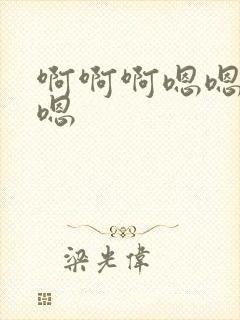 啊啊啊嗯嗯
嗯
梁光偉